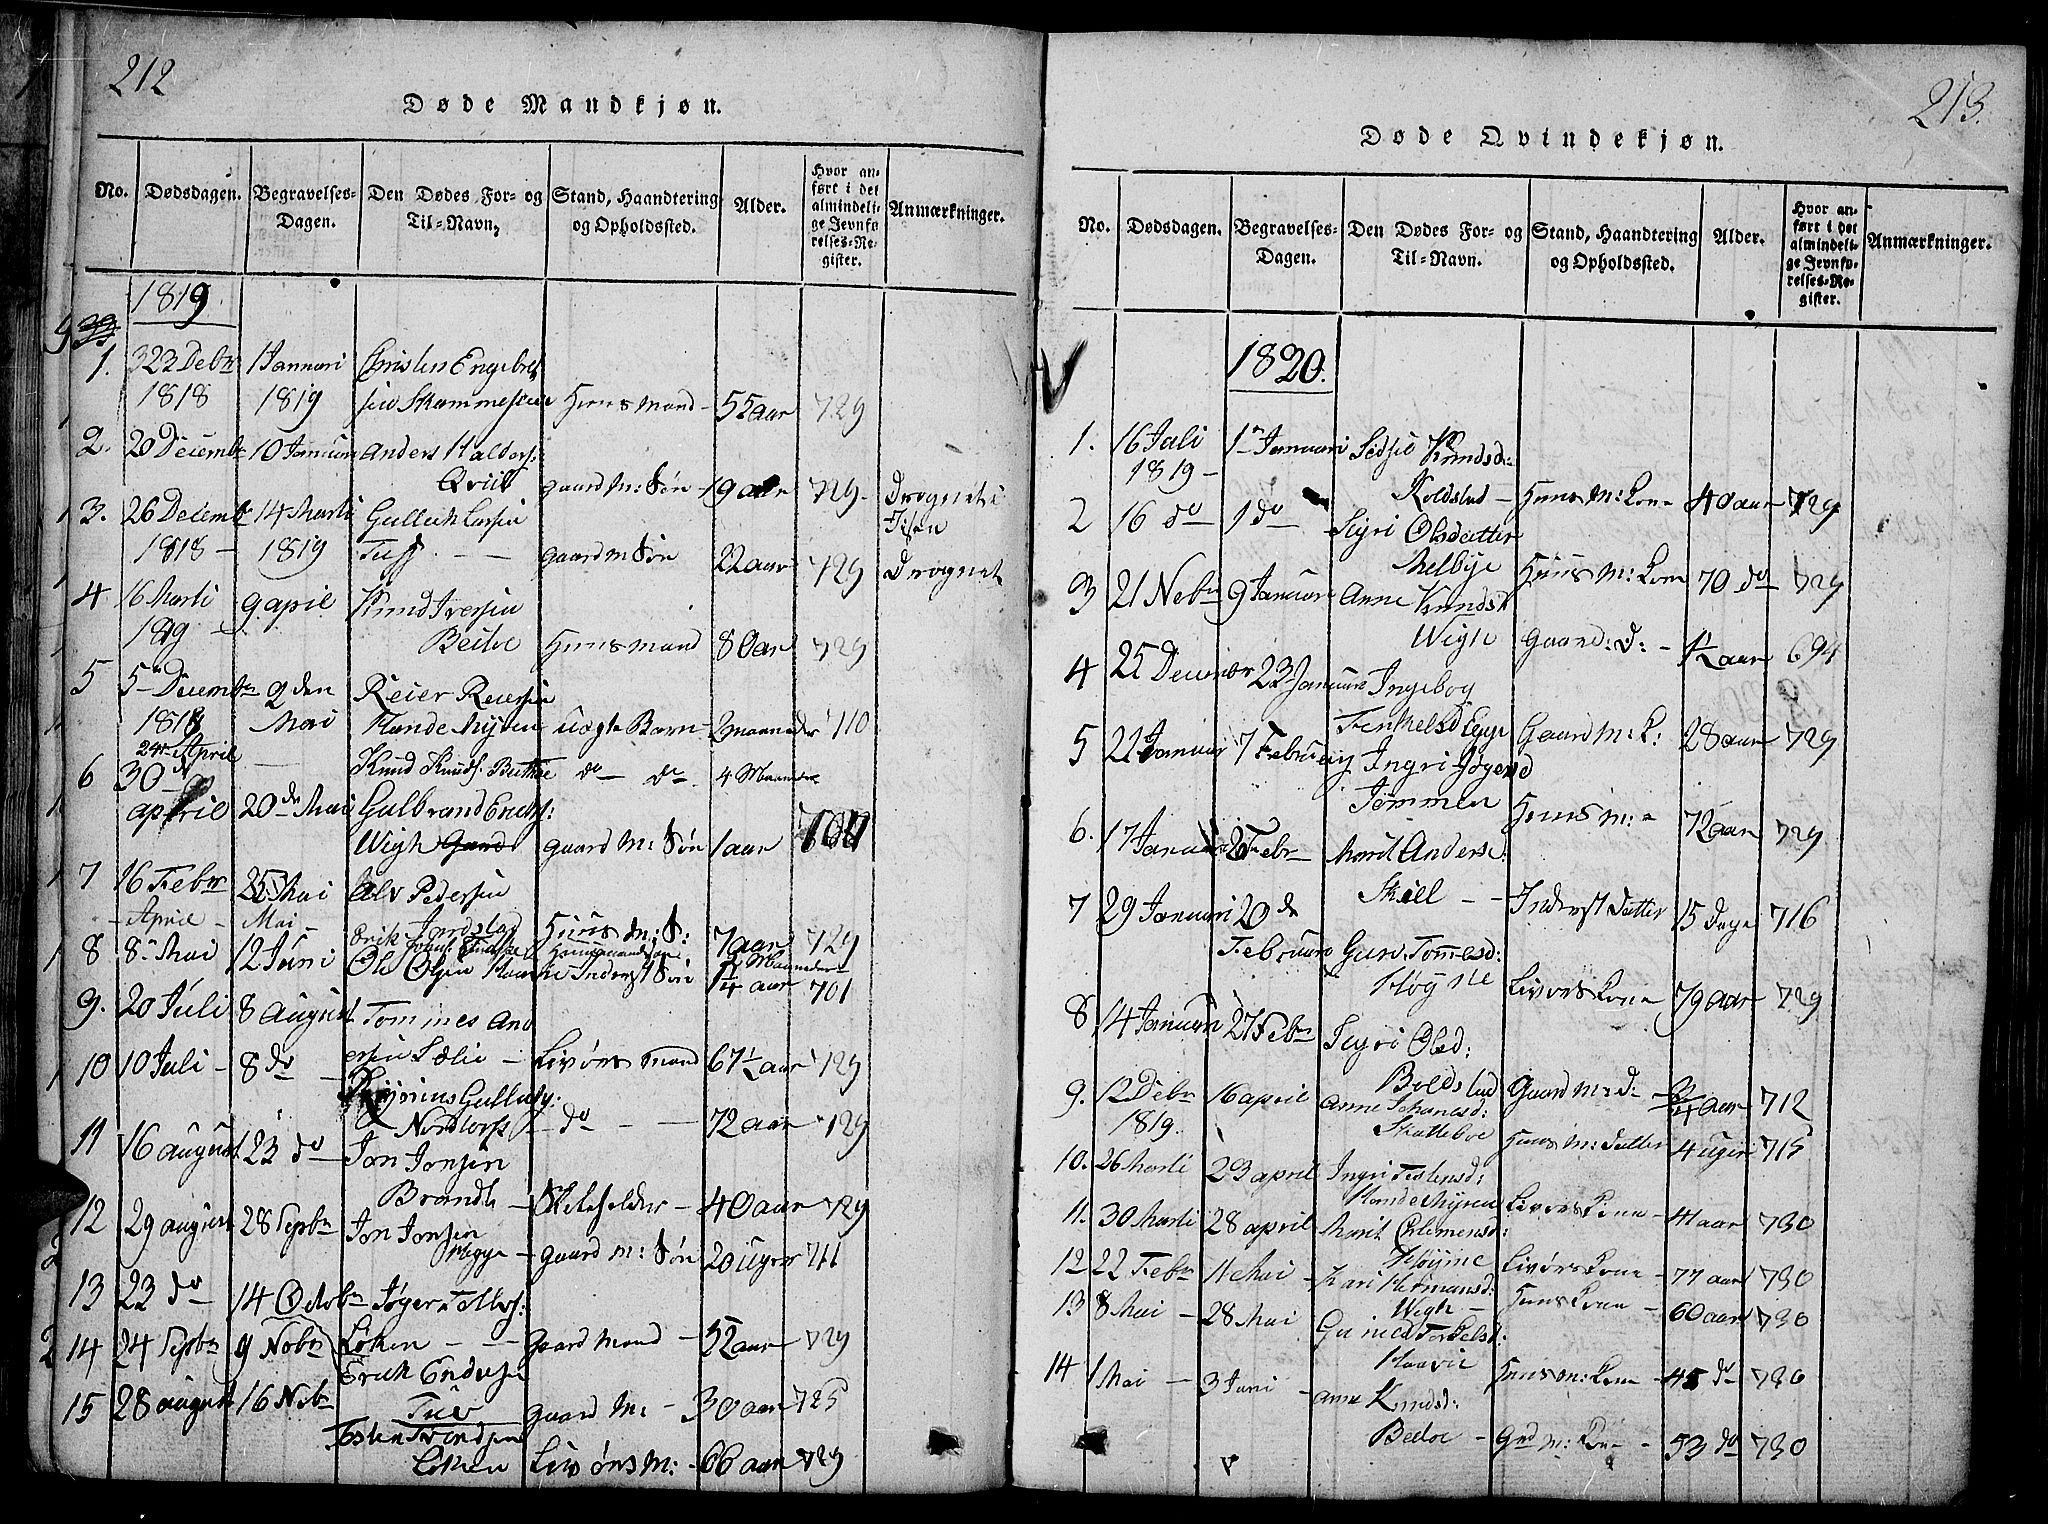 212
Døde Mandkjøn.
No. Dødsdagen. Begravelses-Dagen. Den Dødes For- og Til-Navn, Stand, Haandtering og Opholdssted. Alder. Hvor anført i det almindelige Jevnførelses-Register. Anmærkninger.
1819
1. 23 Debr 1 Januari Christen Engebret
1818 1819 sen Skammesteen Huusmand - 55 aar 729
2. 20 Decembr 10 Januar Anders Haldors:
Qviit gaard M: Søn - 19 aar 729. Drognet i
3. 26 Decembr 14 Marti Gullich Larsen Isen
1818 - 1819 Tuff - - gaard m Søn 22 aar 729 Drognet
4 16 Marti 9 april Knud Iversen
1819 Beitoe Huusmand 80 aar 729
5 5te Decembr 9 den Reier Reiersen
1818 Mai Handemyren uægte Barn - 2 maaneder 110
24 April Knud Knuds. do - do 4 Maaneder
6 30 do
april 20 de Mai Gulbrand Erichs:
Wigh gaard M: Søn 1 aar
7 16 Febr 25 Mai Alv Pedersen
- April - Mai - Erik Huus m: S: 7 aar 729
8 8de Mai 12 Juni Ole Olsen Inderst Søn 1/4 aar 701
9. 20 Juli 8 August Tommes And
ersen Sælie - Livørs mand 67½ aar 729
10 10 Juli - 8 do - Gulliks:
Nordtorp - do - - 72 aar 729
11 16 august 23 do Jon Jonsen
Brandt - 40 aar 729
12 29 august 28 Septbr Jon Jonsen
Egge - gaard M: Søn 20 Uger 711
13 23 do 14 Octobr Jøger Tollefs:
Løken - - Gaard Mand - 52 aar 729
14 24 Septbr 9 Nobr Erick Endresen
Tuv gaard M: - 30 aar 725
15 28 august 16 Nobr Tosten Trondsen
Løken Livørs M: - 66 aar 729
213.
Døde Qvindekjøn.
No. Dødsdagen. Begravelses-Dagen. Den Dødes For- og Til-Navn. Stand, Haandtering og Opholdssted. Alder. Hvor anført i det almindelige Jevnførelses-Register. Anmærkninger.
1820.
1. 16 Juli 1 Januari Sidsel Knudsd:
1819 - Koldstad - Huus M: Kone 40 aar 729
2 16 do 1 do Sigri Olsdatter
Melbye Huus M: Kone 70 do 729
3 21 Nobr 9 Januari Anne Knudsd
Wigh gaard: D: - ½ aar 694
4 25 December 23 Januari Ingebog
Tenkelsd Egge Gaard M: K: 28 aar 729
5 22 Januar 7 Februay Ingri Jøgersd
Tømmen Huus m: - 72 aar 729
6. 17 Januar Febr Marit Anders:
Skiell - - Inderst Datter 15 Dage 716
7 29 Januari 20 de
Februari Guri Tommesd:
Høgne Livørs Kone 79 aar 729
8 14 Januari 27 Febr Sigri Olsd:
Boldstad Gaard M: D - 3/4 aar 712
9. 12 Debr 16 april Anne Johanesd:
1819. Skatteboe Huus M: Datter 4 uger 715
10. 26 Marti 23 april Ingri Tostensd:
Handemyren Livørs Kone - 41 aar 730
11. 30 Marti 28 april Marit Clemensd:
Høyme Livørs Kone - 77 aar 730
12 22 Febr 1 Mai - Kari Hermansd:
Wigh - Huus Kone - 60 aar 730
13 8 Mai - 28 Mai Guned Torkelsd:
Haavie Huus m: Kone - 45 do 730
14 1 Mai - 3 Juni - Anne Knudsd:
Beitoe - Grd M: Kone - 53 do 730